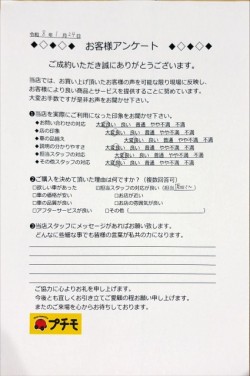 令和 8 年 1 月 24 日
◆◇◆◇◆ お客様アンケート ◆◇◆◇◆
ご成約いただき誠にありがとうございます。
当店では、お買い上げ頂いたお客様の声を可能な限り現場に反映し、
お客様により良い商品とサービスを提供することに努めています。
大変お手数ですが是非お声をお聞かせ下さい。
①当店を実際にご利用になった印象をお聞かせ下さい。
◆お問い合わせの対応 大変良い 良い 普通 やや不満 不満
◆店の印象 大変良い 良い 普通 やや不満 不満
◆車の品揃え 大変良い 良い 普通 やや不満 不満
◆説明の分かりやすさ 大変良い 良い 普通 やや不満 不満
◆担当スタッフの対応 大変良い 良い 普通 やや不満 不満
◆その他スタッフの対応 大変良い 良い 普通 やや不満 不満
②ご購入を決めて頂いた理由は何ですか?(複数回答可)
□欲しい車があった □担当スタッフの対応が良い(担当
□車の価格が安い □お店が近い
□車の内容が良い □お店の雰囲気が良い
□アフターサービスが良い □その他(
③当店スタッフにメッセージがあればお願い致します。
どんなに些細な事でも皆様の言葉が私共の力になります。
ご協力に心よりお礼を申し上げます。
今後とも宜しくお引き立てご愛顧の程お願い申し上げます。
またのご来場を心からお待ちしております。
プチモ